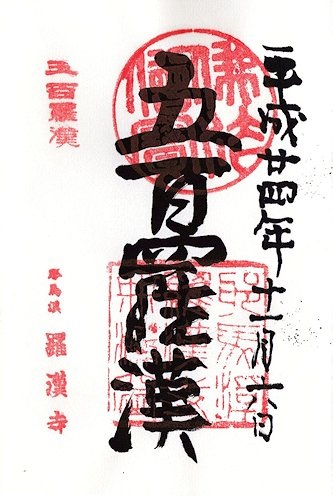 平成廿四年十一月六日
五百羅漢
五百羅漢
耶馬渓 羅漢寺